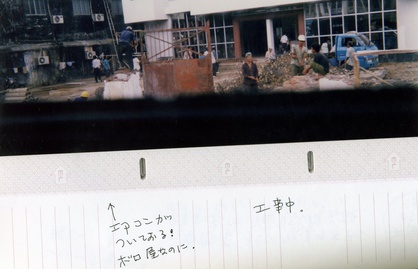 ↑
エアコンが
ついておる!
ボロ屋なのに.
工事中.